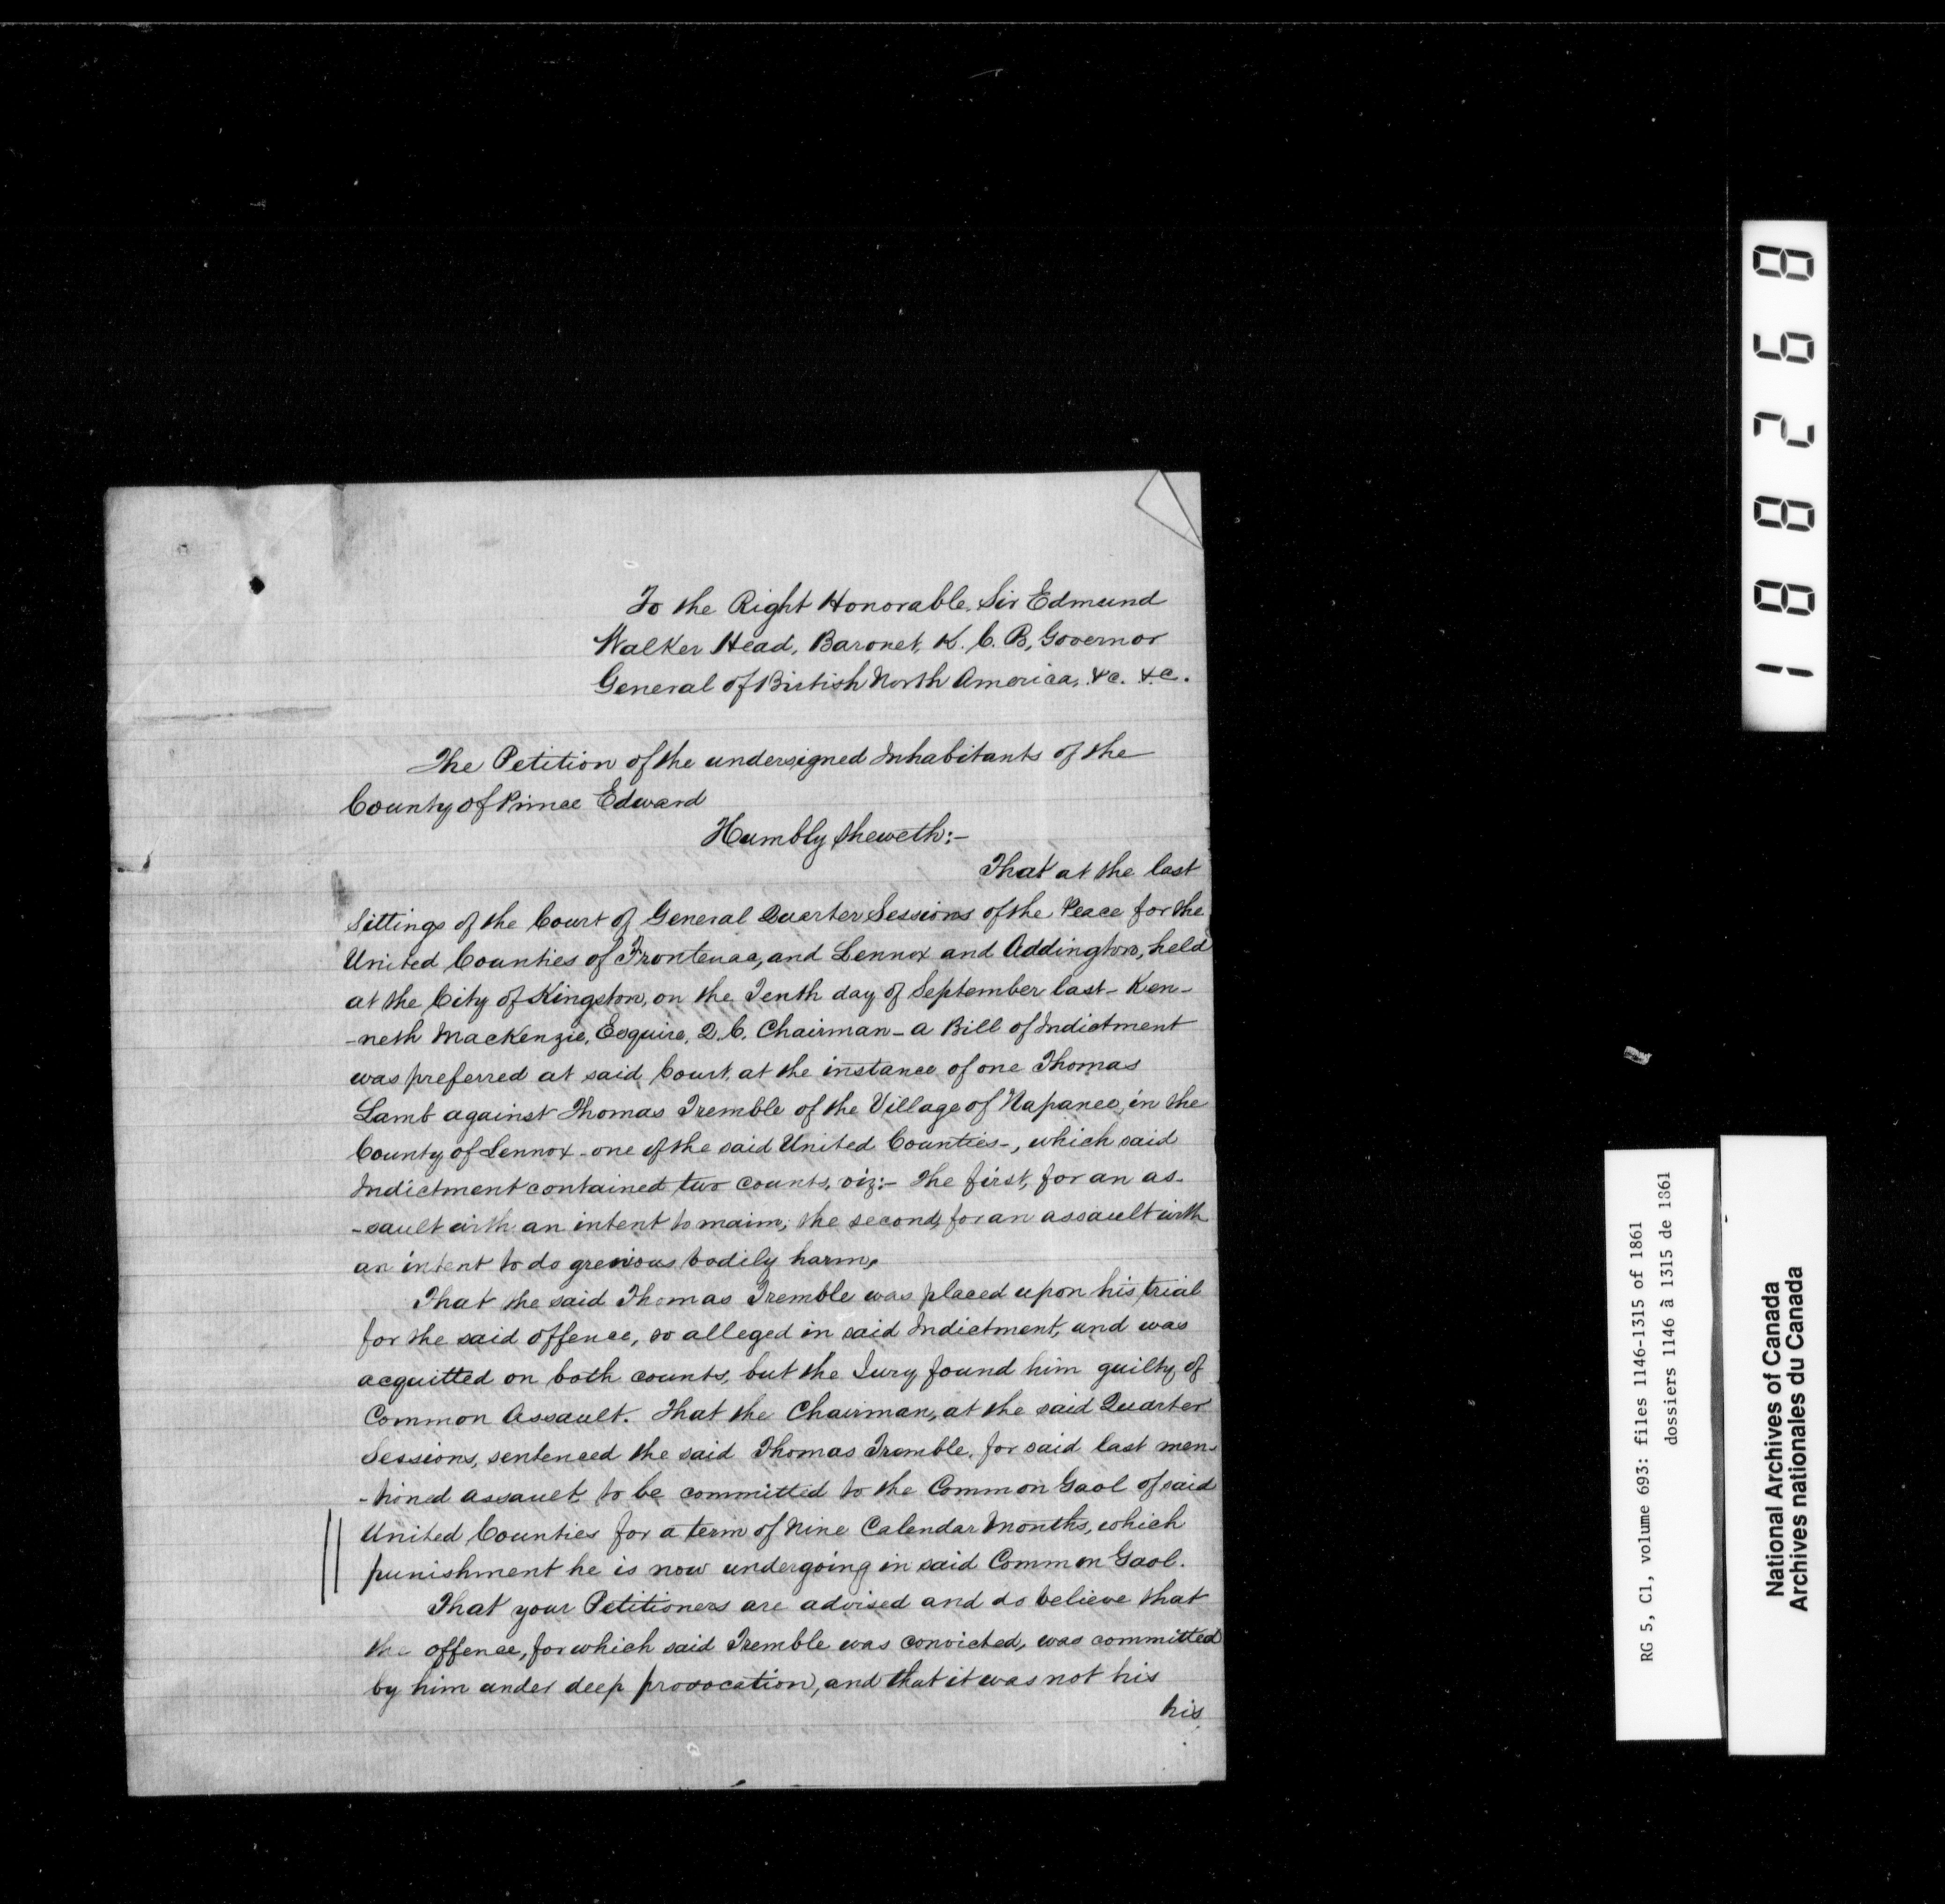 To the Right Honorable Sir Edmund
Walker Head, Baronet, K. C. B, Governor
General of British North America, &c. &c.
The Petition of the undersigned Inhabitants of the
County of Prince Edward
Humbly sheweth:-
That at the last
Sittings of the Court of General Quarter Sessions of the Peace for the
United Counties of Frontenac, and Lennox and Addington, held
at the City of Kingston, on the Tenth day of September last - Ken-
-neth MacKenzie, Esquire, Q. C. Chairman - a Bill of Indictment
was preferred at said Court, at the instance of one Thomas
Lamb against Thomas Tremble of the Village of Napanee, in the
County of Lennox - one of the said United Counties -, which said
Indictment contained two counts, viz:- The first, for an as-
-sault with an intent to maim; the second, for an assault with
an intent to do grevious bodily harm.
That the said Thomas Tremble was placed upon his trial
for the said offence, so alleged in said Indictment, and was
acquitted on both counts, but the Jury found him guilty of
Common Assault. That the Chairman, at the said Quarter
Sessions, sentenced the said Thomas Tremble, for said last men-
-tioned assault, to be committed to the Common Gaol of said
United Counties for a term of Nine Calendar Months, which
punishment he is now undergoing in said Common Gaol.
That your Petitioners are advised and do believe that
the offence, for which said Tremble was convicted, was committed
by him under deep provocation, and that it was not his
his
188268
RG 5, C1, volume 693: files 1146-1315 of 1861
dossiers 1146 à 1315 de 1861
National Archives of Canada
Archives nationales du Canada